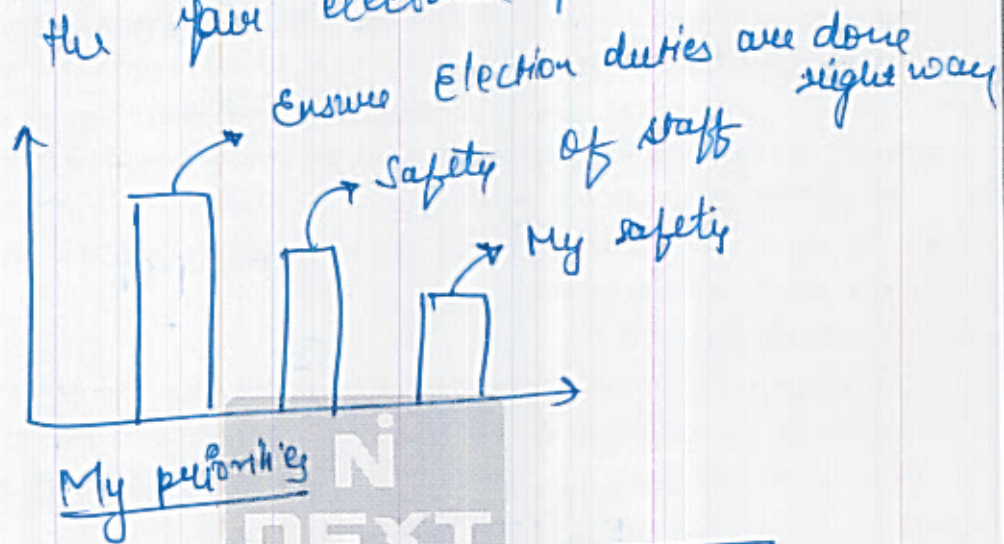 the fair
Ensure Election duties are done
right way
Safety of staff
My safety
My priorities
N